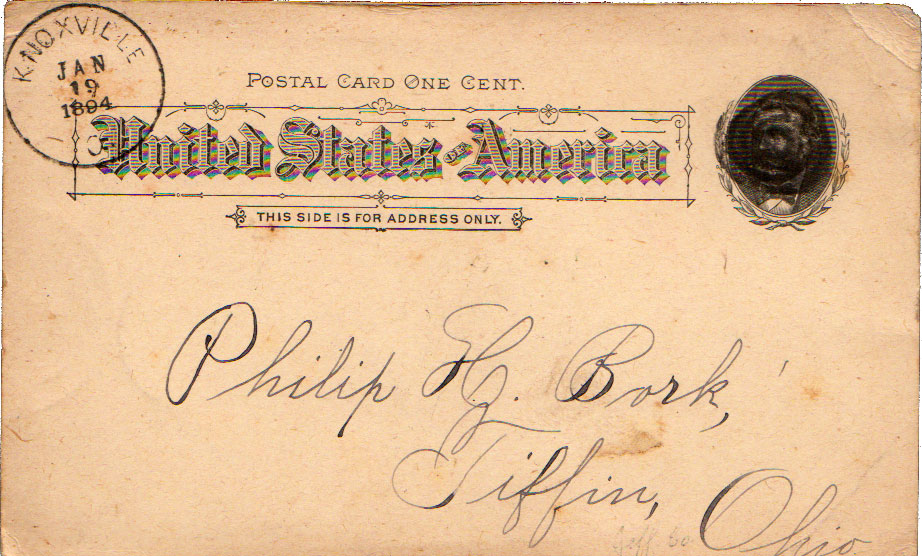 KNOXVILLE
JAN
19
1894
POSTAL CARD ONE CENT.
United States OF America
THIS SIDE IS FOR ADDRESS ONLY.
Philip H. Bork,
Tiffin,
Ohio